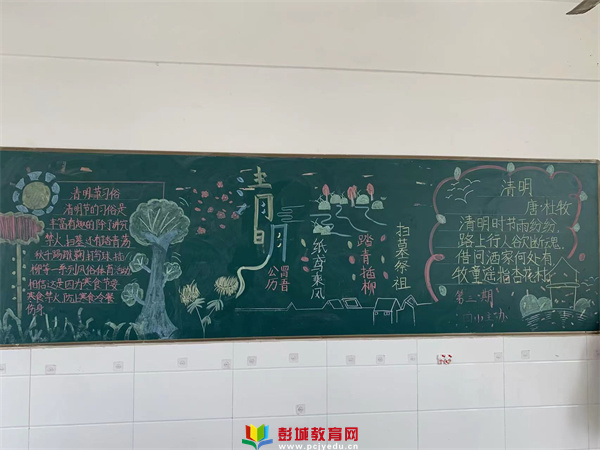 清明节习俗
清明节的习俗是
丰富有趣的除了讲究
禁火、扫墓还有踏青荡
秋千蹴鞠打马球、插
柳等一系列风俗体育活动
相传这是因为寒食节要
寒食禁火防止寒食冷餐
伤身
清明
公历
纸鸢乘风
踏青插柳
扫墓祭祖
清明
唐·杜牧
清明时节雨纷纷，
路上行人欲断魂
借问酒家何处有
牧童遥指杏花村
第二期
彭城教育网
www.pcjyedu.cn